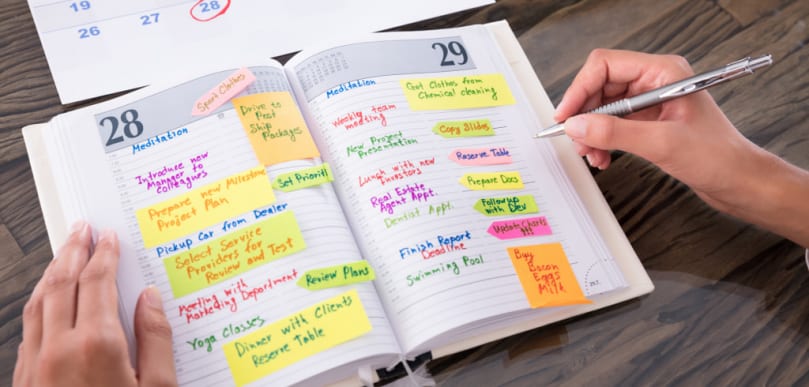 19
26
27
28
28
Meditation
Sport Clothes
Drive to
Post
Ship
Packages
Introduce new
Manager to
Colleagues
Set Priority
Prepare new Milestone
Project Plan
Pickup Car from Dealer
Select Service
Providers for
Review and Test
Meeting with
Marketing Department
Review Plans
Yoga Classes
Dinner with Clients
Reserve Table
29
Meditation
Get Clothes from
Chemical cleaning
Weekly team
meeting
Copy Slides
New Project
Presentation
Reserve Table
Lunch with new
Investors
Prepare Docs
Real Estate
Agent Appt.
Follow up
with Dev
Dentist Appt.
Update Charts
Finish Report
Deadline
Buy
Bacon
Eggs
Milk
Swimming Pool